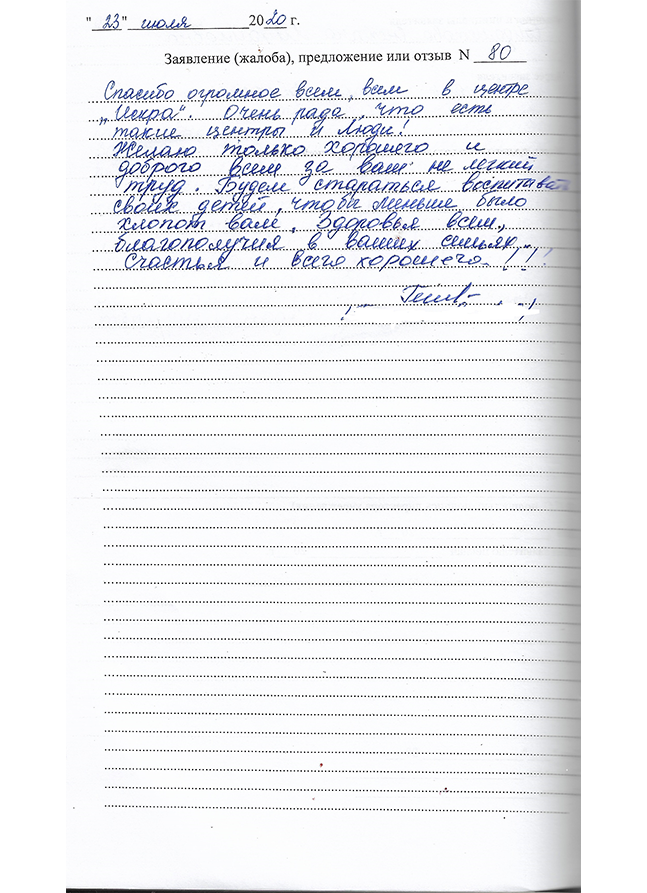 "23" июля 2020 г.
Заявление (жалоба), предложение или отзыв N 80
Спасибо огромное всем, всем в центре
"Искра". Очень рада, что есть
такие центры и люди!
Желаю только хорошего и
доброго всем за ваш не легкий
труд. Будем стараться воспитывать
своих детей, чтобы меньше было
хлопот вам. Здоровья всем,
благополучия в ваших семьях,
счастья и всего хорошего!!!